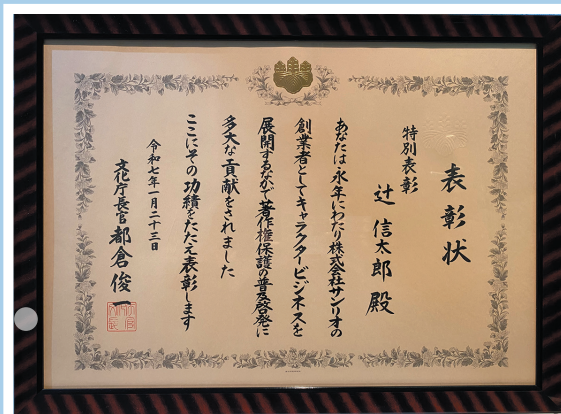 表彰状
特別表彰
辻 信太郎 殿
あなたは永年にわたり株式会社サンリオの
創業者としてキャラクタービジネスを
展開するなかで著作権保護の普及啓発に
多大な貢献をされました
ここにその功績をたたえ表彰します
令和七年一月二十三日
文化庁長官 都倉俊一